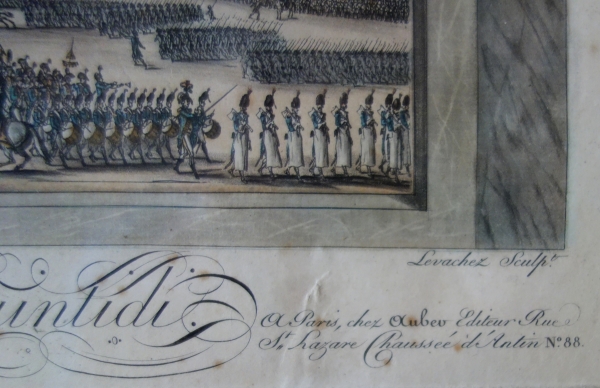 Levachez Sculpt.
uintidi.
A Paris, chez Auber Editeur Rue
St. Lazare Chaussée d'Antin No. 88.